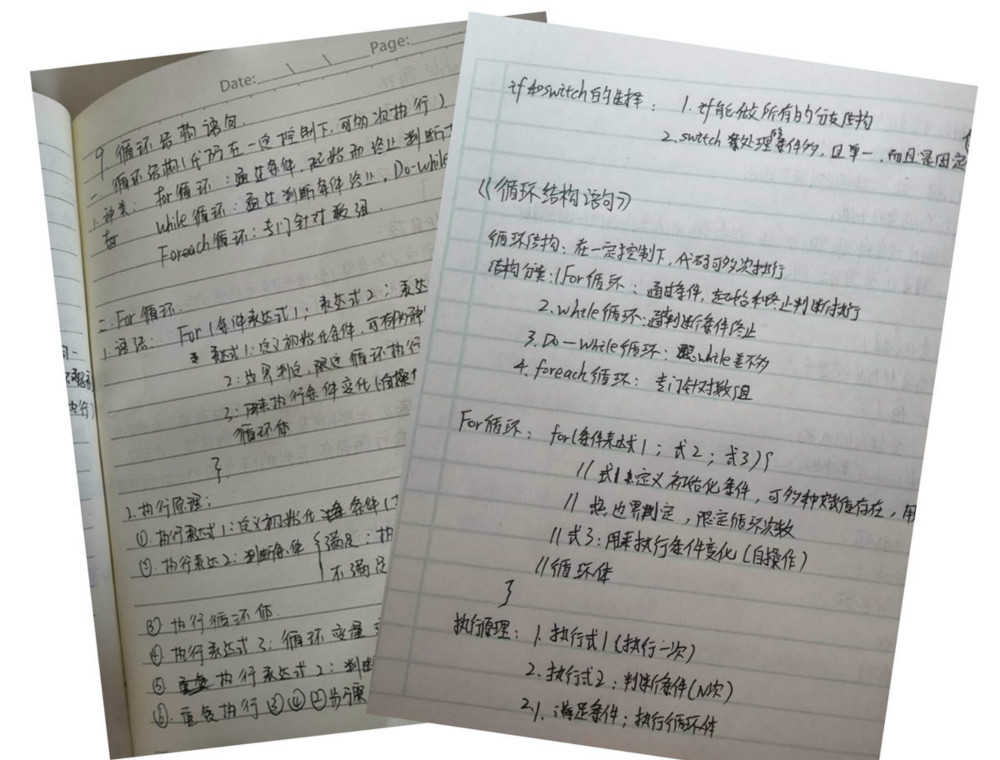 Date: \ \ Page:
9 循环结构语句.
一 循环结构(代码在一定控制下,可多次执行)
1.种类: for循环:通过条件,起始和终止判断
while循环:通过判断条件终止, Do-while
Foreach循环:专门针对数组.
二.For循环.
1.语法: For (条件表达式1; 表达式2; 表达
表达式1:定义初始化条件,可有多种
2:边界判定,限定循环执行
3:用来执行条件变化(自操
循环体
}
2.执行原理:
① 执行表达式1:定义初始化 条件(
②.执行表达2:判断条件 满足:执
不满足
③ 执行循环体.
④.执行表达式3:循环变量
⑤ 执行表达式2:判断
⑥.重复执行③④②步骤
if和switch的选择: 1.if能做所有的分支结构
2.switch 处理条件多,且单一,而且是固定
《循环结构语句》
循环结构:在一定控制下,代码可多次执行
结构分类:1.For循环:通过条件,起始和终止判断执行
2.while循环:通判断条件终止
3.Do-while循环:跟while差不多
4.foreach循环:专门针对数组
For循环: for(条件表达式1;式2;式3){
//式1:定义初始化条件,可多种赋值存在,用
// 边界判定,限定循环次数
//式3:用来执行条件变化(自操作)
//循环体
}
执行原理: 1.执行式1(执行一次)
2.执行式2:判断条件(N次)
2.1.满足条件;执行循环体